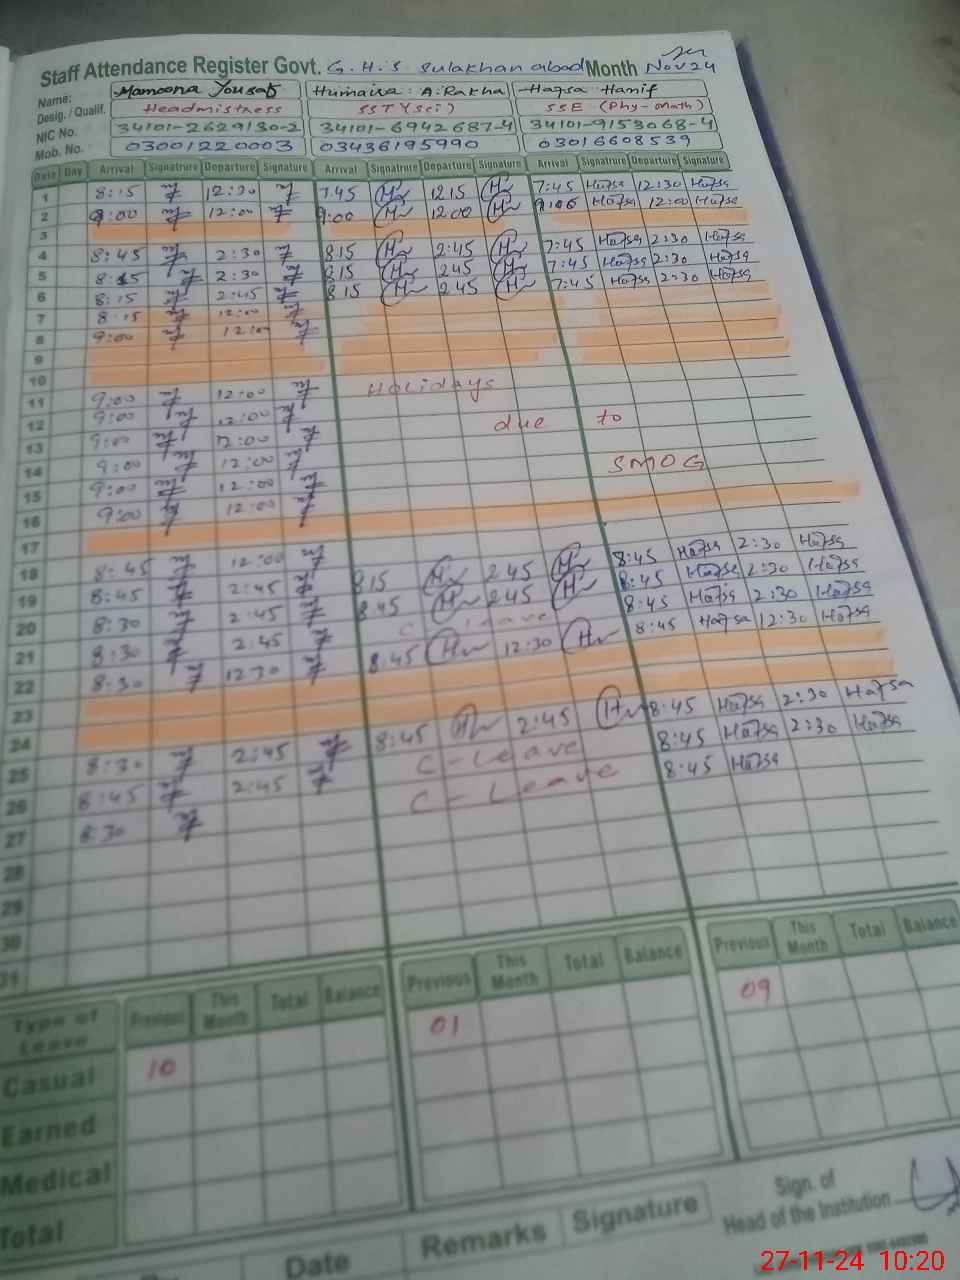 Staff Attendance Register Govt. G.H.S Sulakhan abad Month Nov 24
Name: Mamoona Yousaf Humaira A.Rakha Hafsa Hanif
Desig. / Qualif. Headmistress SST (Sci) SSE (Phy-Math)
NIC No. 34101-2629130-2 34101-6942687-4 34101-9153068-4
Mob. No. 03001220003 03436195990 03016608539
Date Day Arrival Signatrure Departure Signature Arrival Signatrure Departure Signature Arrival Signatrure Departure Signature
1 8:15 12:30 7:45 12 15 7:45 Hafsa 12:30 Hafsa
2 9:00 12:00 9:00 12 00 9:00 Hafsa 12:00 Hafsa
3
4 8:45 2:30 8 15 2:45 7:45 Hafsa 2:30 Hafsa
5 8:15 2:30 8 15 2 45 7:45 Hafsa 2:30 Hafsa
6 8:15 2:45 8 15 2 45 7:45 Hafsa 2:30 Hafsa
7 8:15 12:00
8 9:00 12:00
9
10
11 9:00 12:00 Holidays
12 9:00 12:00 due to
13 9:00 12:00
14 9:00 12:00 SMOG
15 9:00 12:00
16 9:00 12:00
17
18 8:45 12:00 8:45 Hafsa 2:30 Hafsa
19 8:45 2:45 8 15 2 45 8:45 Hafsa 2:30 Hafsa
20 8:30 2:45 8:45 2 45 8:45 Hafsa 2:30 Hafsa
21 8:30 2:45 C Leave 8:45 Hafsa 12:30 Hafsa
22 8:30 12:30 8:45 12:30
23
24
25 8:30 2:45 8:45 2:45 8:45 Hafsa 2:30 Hafsa
26 8:45 2:45 C-Leave 8:45 Hafsa 2:30 Hafsa
27 8:30 C-Leave 8:45 Hafsa
28
29
30
31
Type of Leave Previous This Month Total Balance Previous This Month Total Balance Previous This Month Total Balance
Casual 10 01 09
Earned
Medical
Total
Sign. of
Head of the Institution
Date Remarks Signature
27-11-24 10:20